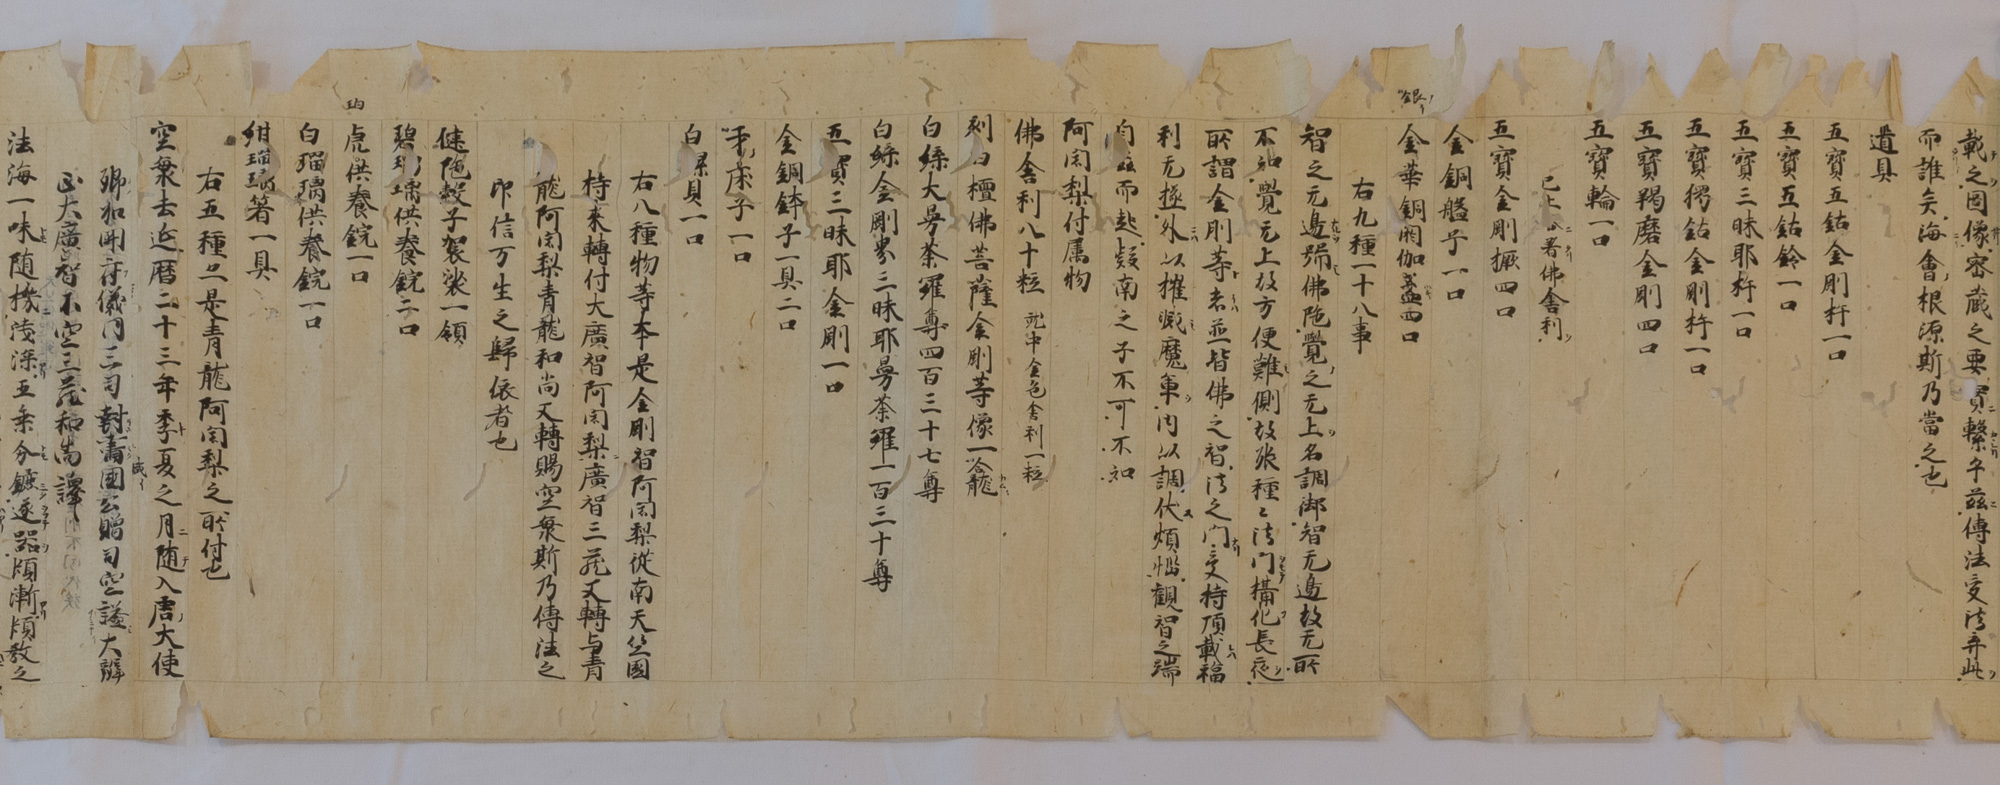 載之圖像密藏之要實繫乎茲傳法受法弃此
而誰矣海會根源斯乃當之也
道具
五寶五鈷金剛杵一口
五寶五鈷鈴一口
五寶三昧耶杵一口
五寶獨鈷金剛杵一口
五寶羯磨金剛四口
五寶輪一口
已上各著佛舍利
五寶金剛橛四口
金銅盤子一口
金華銅閼伽盞四口
銀イ
右九種一十八事
智之无邊号佛陀覺之无上名調御智无邊故无所
不知覺无上故方便難側故張種々法門橫化長夜
所謂金剛等者並皆佛之智法之門受持頂戴福
利无極外以摧滅魔軍內以調伏煩惱觀智之端
自茲而起疑南之子不可不知
阿闍梨付属物
佛舍利八十粒 就中金色舍利一粒
刻白檀佛菩薩金剛等像一龕
白緤大曼荼羅尊四百三十七尊
白緤金剛界三昧耶曼荼羅一百三十尊
五寶三昧耶金剛一口
金銅鉢子一具二口
牙床子一口
白螺貝一口
右八種物等本是金剛智阿闍梨從南天竺國
持來轉付大廣智阿闍梨廣智三藏又轉与青
龍阿闍梨青龍和尚又轉賜空衆斯乃傳法之
印信万生之歸依者也
健陀穀子袈裟一領
碧瑠璃供養鋺二口
虎供養鋺一口
白瑠璃供養鋺一口
紺瑠璃箸一具
右五種亦是青龍阿闍梨之所付也
空衆去延曆二十三年季夏之月随入唐大使
正大廣智不空三藏和尚譯
法海一味随機淺深五乘分鑣逐器頓漸頓教之